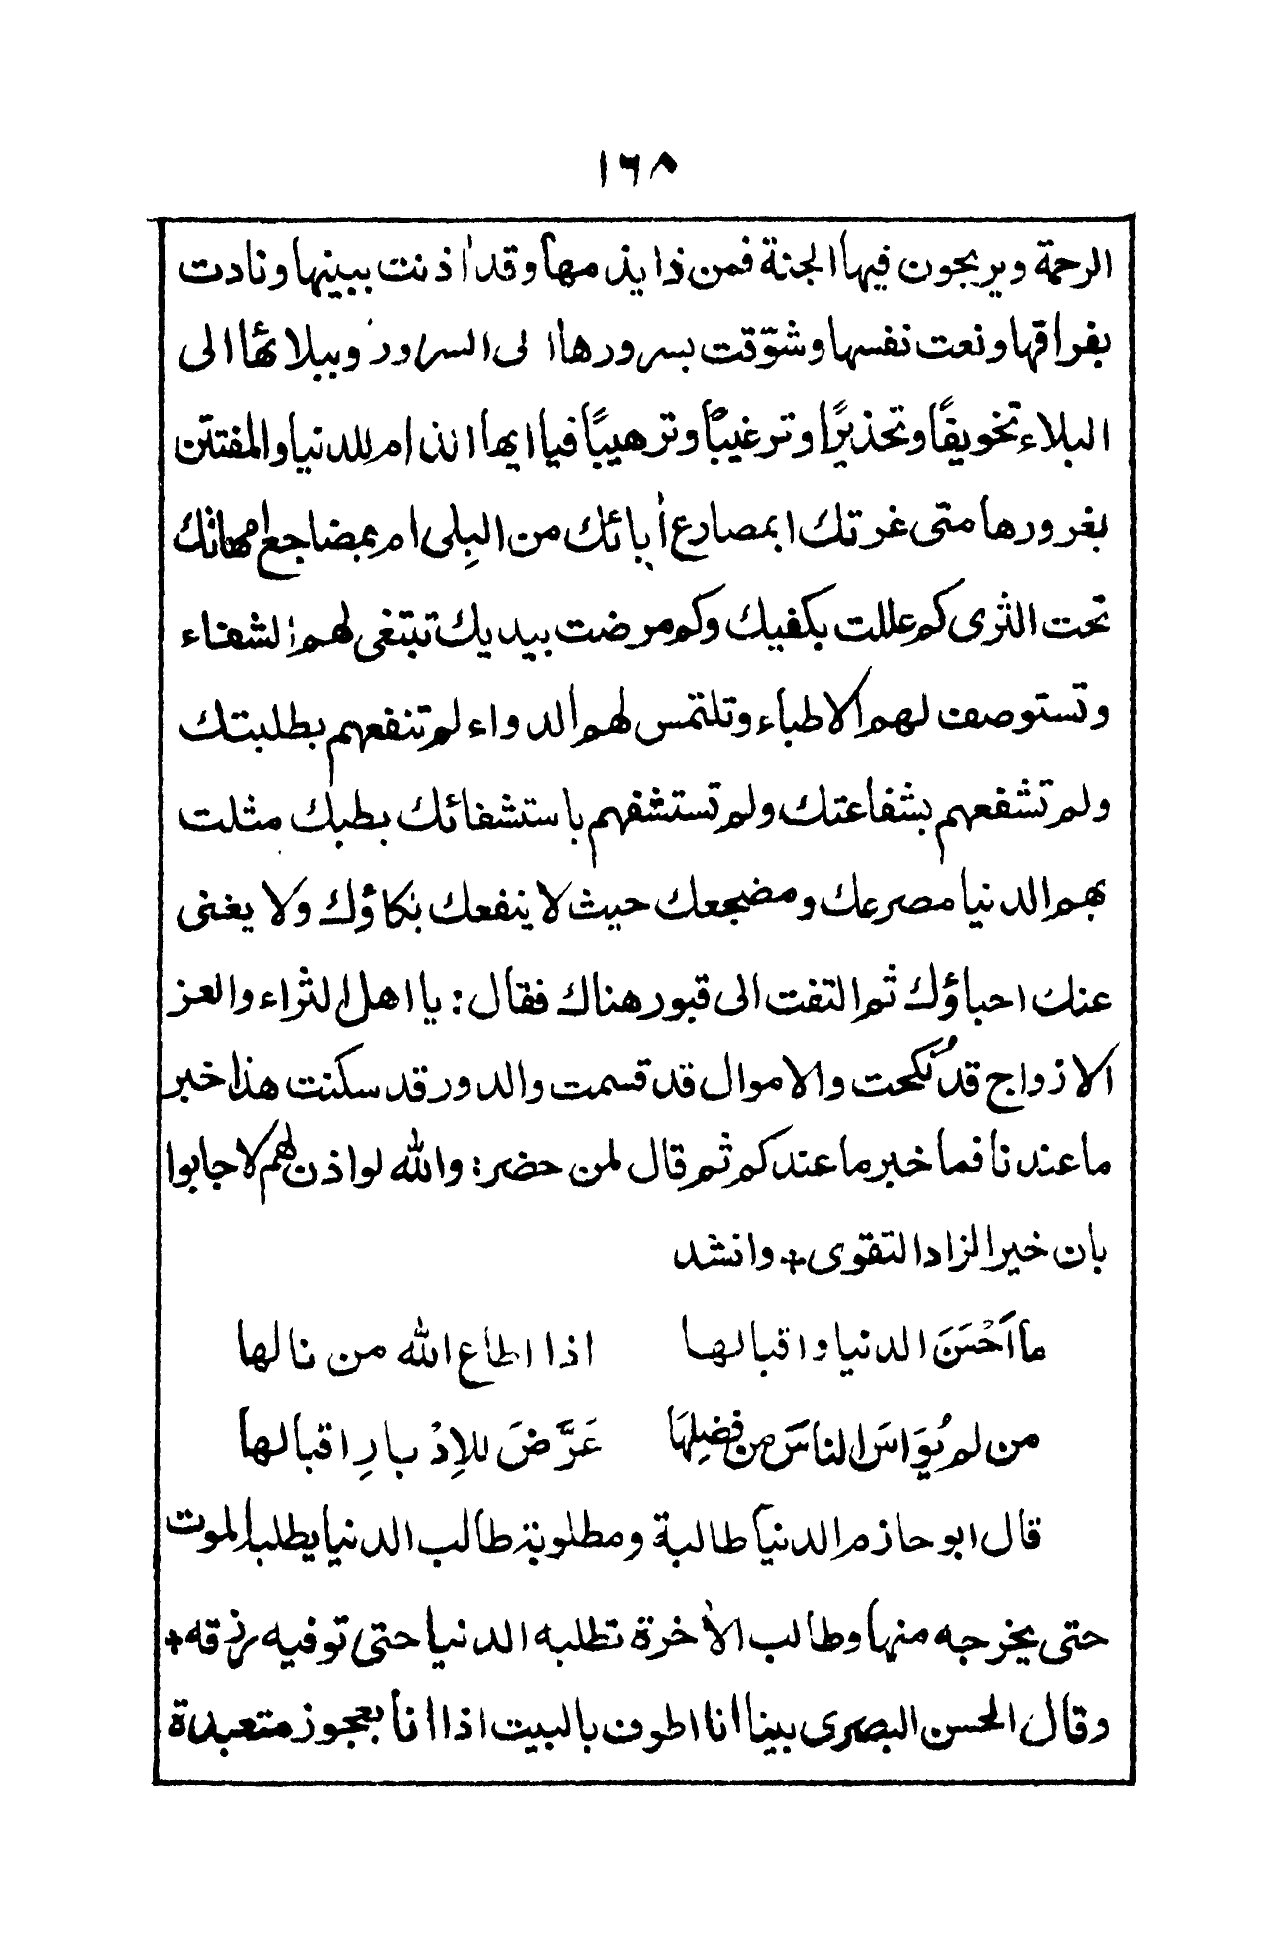 ١٦٨
الرحمة ويربحون فيها الجنة فمن ذا يذمها وقد اٰذنت ببينها ونادت
بفراقها ونعت نفسها وشوّقت بسرورها الى السرور وببلائها الى
البلاء تخويفًا وتحذيرًا وترغيبًا وترهيبًا فيا ايها الذام للدنيا والمفتتن
بغرورها متى غرتك ابمصارع اٰبائك من البِلى ام بمضاجع امهاتك
تحت الثرى كم عللت بكفيك وكم مرضت بيديك تبتغى لهم الشفاء
وتستوصف لهم الاطباء وتلتمس لهم الدواء لم تنفعهم بطلبتك
ولم تشفعهم بشفاعتك ولم تستشفهم باستشفائك بطبك مثلت
بهم الدنيا مصرعك ومضجعك حيث لا ينفعك بكاؤك ولا يغنى
عنك احباؤك ثم التفت الى قبور هناك فقال: يا اهل الثراء والعز
الازواج قد نُكحت والاموال قد قسمت والدور قد سكنت هذا خبر
ما عندنا فما خبر ما عندكم ثم قال لمن حضر: والله لو اذن لهم لاجابوا
بان خير الزاد التقوى + وانشد
ما اَحْسَنَ الدنيا واقبالها اذا اطاع الله من نالها
من لم يُوَاسَ الناسَ من فضلِهَا عَرَّضَ للاِدْبارِ اقبالها
قال ابو حازم الدنيا طالبة ومطلوبة طالب الدنيا يطلبه الموت
حتى يخرجه منها وطالب الاٰخرة تطلبه الدنيا حتى توفيه رزقه +
وقال الحسن البصرى بينا انا اطوف بالبيت اذا انا بعجوز متعبدة